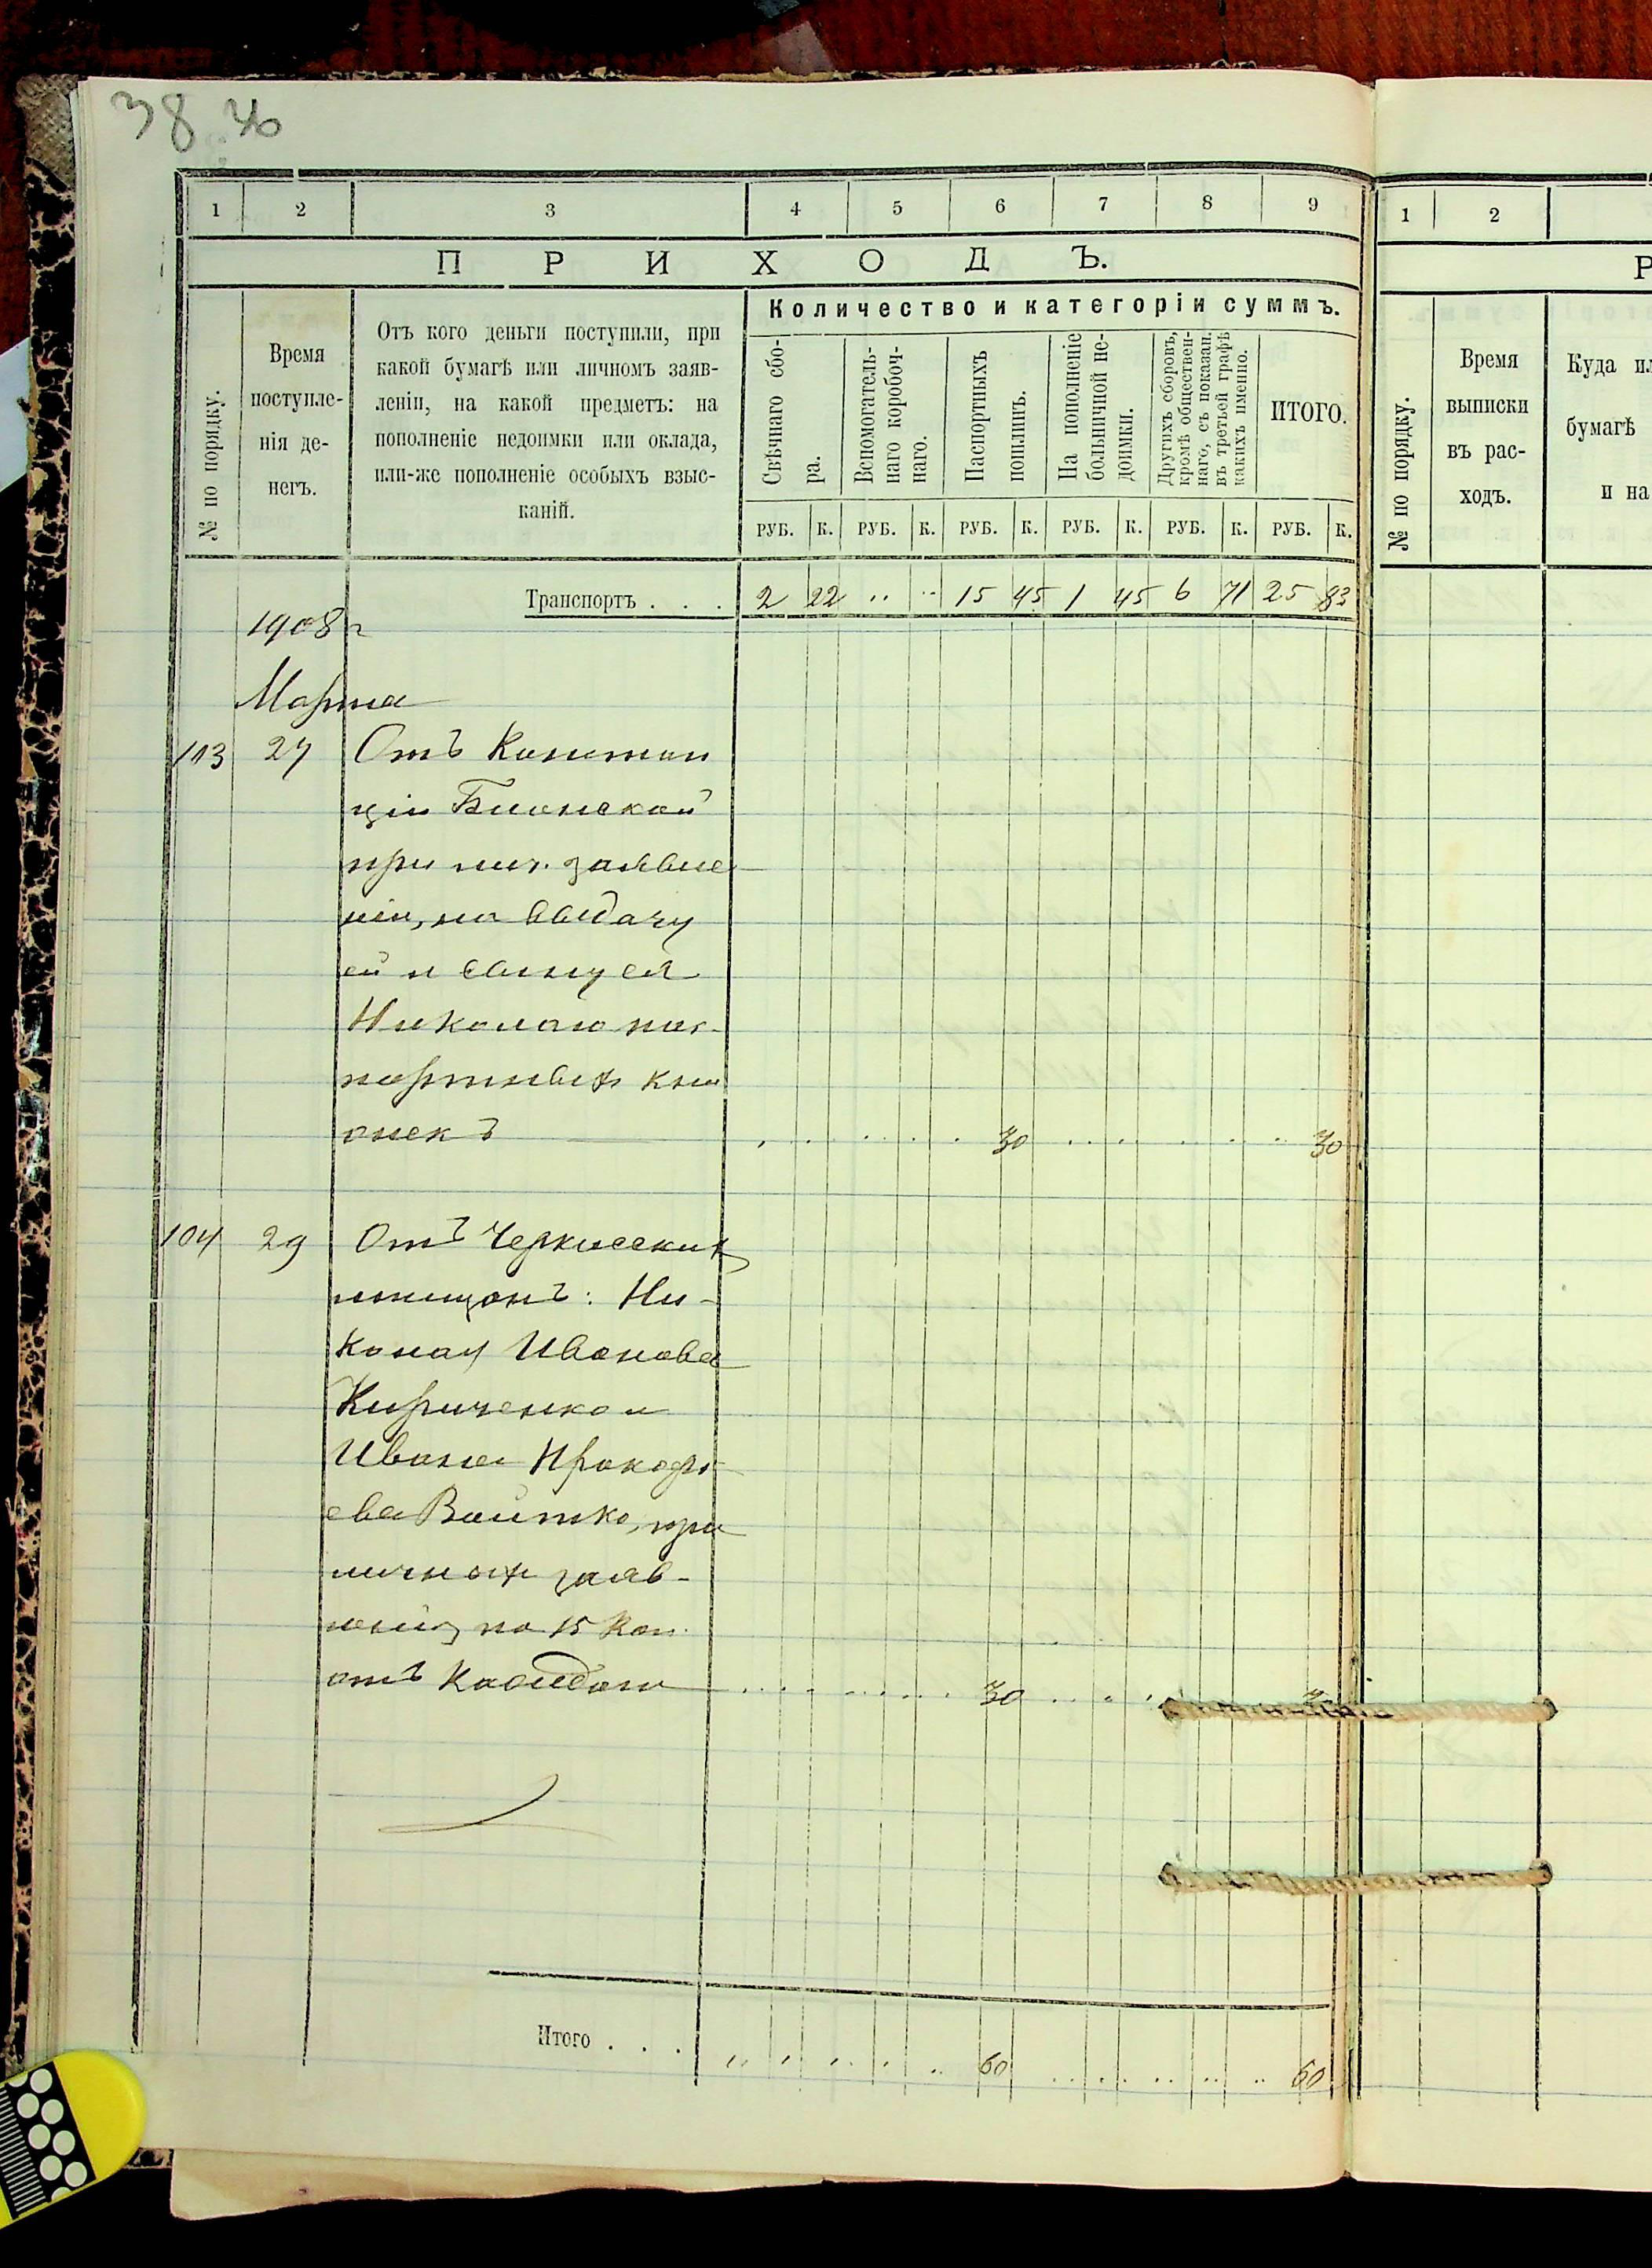 38 36
1 2 3 4 5 6 7 8 9
ПРИХОДЪ.
№ по порядку.
Время
поступле-
нія де-
негъ.
Отъ кого деньги поступили, при
какой бумагѣ или личномъ заяв-
леніи, на какой предметъ: на
пополненіе недоимки или оклада,
или-же пополненіе особыхъ взыс-
каній.
Количество и категоріи суммъ.
Свѣчнаго сбо-
ра.
Вспомогатель-
наго коробоч-
наго.
Паспортныхъ
пошлинъ.
На пополненіе
больничной не-
доимки.
Другихъ сборовъ,
кромѣ обществен-
наго, съ показан.
въ третьей графѣ
какихъ именно.
ИТОГО.
РУБ. К. РУБ. К. РУБ. К. РУБ. К. РУБ. К. РУБ. К.
Транспортъ . . . 2 22 .. .. 15 45 1 45 6 71 25 83
1908 г
Марта
103 27 Отъ Констан
ціи
при лич. заявле
ніи, на выдачу
ей и сыну ея
Николаю пас-
портныхъ кни
жекъ 30 30
104 29 Отъ Черкасскихъ
мѣщанъ: Ни-
Иванова
Кириченко и
Ивана Прокофь
ева Войтко, при
личномъ заяв-
леніи, по 15 коп.
отъ каждаго 30
Итого . . . 60 60
1 2
Р
№ по порядку.
Время
выписки
въ рас-
ходъ.
Куда ил
бумагѣ
и на